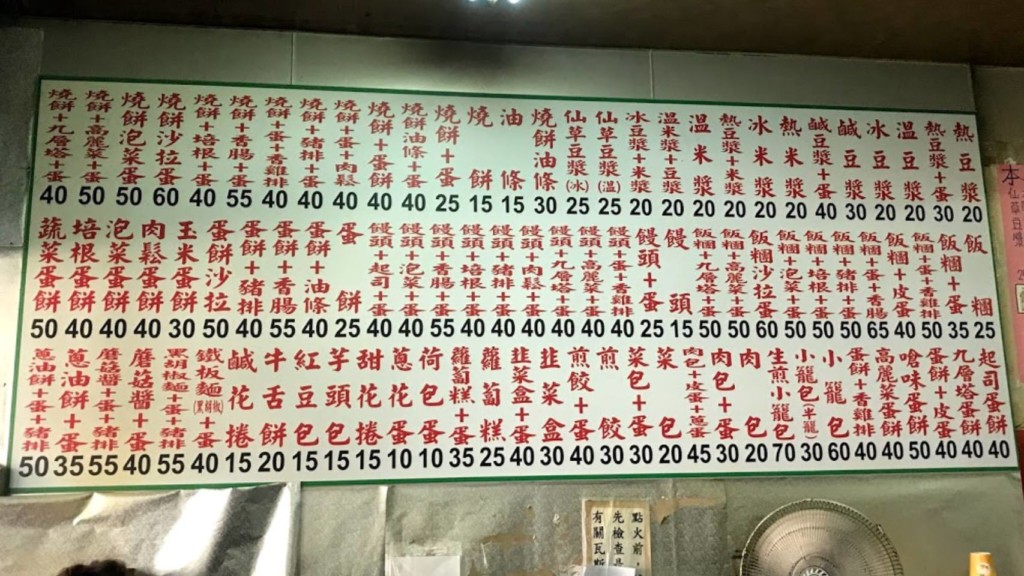 熱豆漿 20
熱豆漿+蛋 30
溫豆漿 20
冰豆漿 20
鹹豆漿 30
鹹豆漿+蛋 40
熱米漿 20
冰米漿 20
熱豆漿+米漿 20
溫米漿 20
溫米漿+豆漿 20
冰豆漿+米漿 20
仙草豆漿(溫) 25
仙草豆漿(冰) 25
燒餅油條 30
油條 15
燒餅 15
燒餅+蛋 25
燒餅油條+蛋 40
燒餅+蛋餅 40
燒餅+蛋+肉鬆 40
燒餅+蛋+豬排 40
燒餅+蛋+香雞排 40
燒餅+香腸+蛋 55
燒餅+培根+蛋 40
燒餅沙拉蛋 60
燒餅泡菜蛋 50
燒餅+高麗菜+蛋 50
燒餅+九層塔+蛋 40
飯糰 25
飯糰+蛋 35
飯糰+蛋+香雞排 50
飯糰+皮蛋 40
飯糰+蛋+香腸 65
飯糰+蛋+豬排 50
飯糰+培根+蛋 50
飯糰+泡菜+蛋 50
飯糰沙拉蛋 60
飯糰+高麗菜+蛋 50
飯糰+九層塔+蛋 50
饅頭 15
饅頭+蛋 25
饅頭+蛋+香雞排 40
饅頭+高麗菜+蛋 40
饅頭+九層塔+蛋 40
饅頭+肉鬆+蛋 40
饅頭+豬排+蛋 40
饅頭+培根+蛋 40
饅頭+香腸+蛋 55
饅頭+泡菜+蛋 40
饅頭+起司+蛋 40
蛋餅 25
蛋餅+油條 40
蛋餅+香腸 55
蛋餅+豬排 40
蛋餅沙拉 50
玉米蛋餅 30
肉鬆蛋餅 40
泡菜蛋餅 40
培根蛋餅 40
蔬菜蛋餅 50
起司蛋餅 40
九層塔蛋餅 40
蛋餅+皮蛋 40
嗆味蛋餅 50
高麗菜蛋餅 40
蛋餅+香雞排 40
小籠包 60
小籠包(半籠) 30
生煎小籠包 70
肉包 20
肉包+蛋 30
肉包+皮蛋+蔥蛋 45
菜包 20
菜包+蛋 30
煎餃 30
煎餃+蛋 40
韭菜盒 30
韭菜盒+蛋 40
蘿蔔糕 25
蘿蔔糕+蛋 35
荷包蛋 10
蔥花蛋 10
甜花捲 15
芋頭包 15
紅豆包 15
牛舌餅 20
鹹花捲 15
鐵板麵(黑胡椒)+蛋 40
黑胡椒麵+蛋+豬排 55
蘑菇醬+蛋 40
蘑菇醬+蛋+豬排 55
蔥油餅+蛋 35
蔥油餅+蛋+豬排 50
本
點火前，
先檢查
有關瓦斯